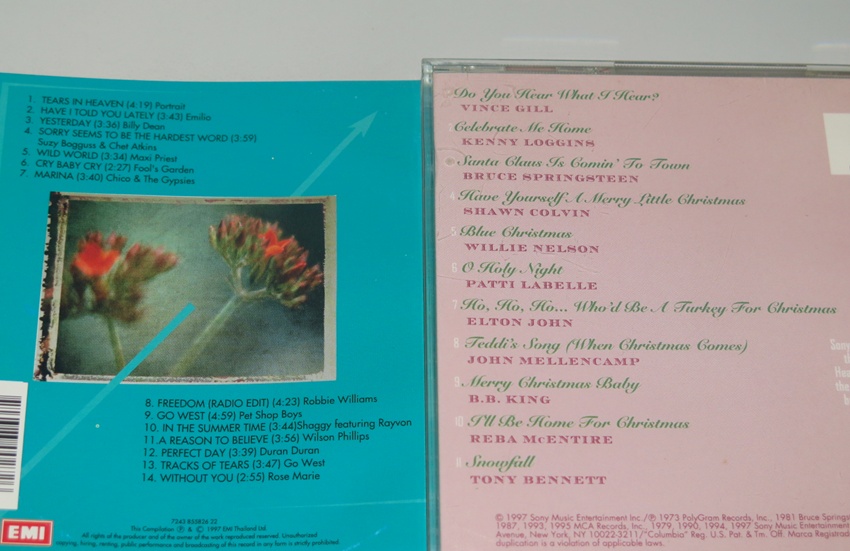 1. TEARS IN HEAVEN (4:19) Portrait
2. HAVE I TOLD YOU LATELY (3:43) Emilio
3. YESTERDAY (3:36) Billy Dean
4. SORRY SEEMS TO BE THE HARDEST WORD (3:59)
Suzy Bogguss & Chet Atkins
5. WILD WORLD (3:34) Maxi Priest
6. CRY BABY CRY (2:27) Fool's Garden
7. MARINA (3:40) Chico & The Gypsies
8. FREEDOM (RADIO EDIT) (4:23) Robbie Williams
9. GO WEST (4:59) Pet Shop Boys
10. IN THE SUMMER TIME (3:44)Shaggy featuring Rayvon
11.A REASON TO BELIEVE (3:56) Wilson Phillips
12. PERFECT DAY (3:39) Duran Duran
13. TRACKS OF TEARS (3:47) Go West
14. WITHOUT YOU (2:55) Rose Marie
This Compilation ℗ & © 1997 EMI Thailand Ltd.
All rights of the producer and of the owner of the work reproduced reserved. Unauthorized
hiring, renting, public performance and broadcasting of this record in any form is strictly prohibited.
EMI
Do You Hear What I Hear?
VINCE GILL
Celebrate Me Home
KENNY LOGGINS
Santa Claus Is Comin' To Town
BRUCE SPRINGSTEEN
4 Have Yourself A Merry Little Christmas
SHAWN COLVIN
5 Blue Christmas
WILLIE NELSON
6 O Holy Night
PATTI LABELLE
7 Ho, Ho, Ho... Who'd Be A Turkey For Christmas
ELTON JOHN
8 Teddi's Song (When Christmas Comes)
JOHN MELLENCAMP
9 Merry Christmas Baby
B.B. KING
10 I'll Be Home For Christmas
REBA McENTIRE
11 Snowfall
TONY BENNETT
Sony
© 1997 Sony Music Entertainment Inc./℗ 1973 PolyGram Records, Inc., 1981 Bruce Springs
1987, 1993, 1995 MCA Records, Inc., 1979, 1990, 1994, 1997 Sony Music Entertainment
Avenue, New York, NY 10022-3211/"Columbia" Reg. U.S. Pat. & Tm. Off. Marca Registrad
duplication is a violation of applicable laws.